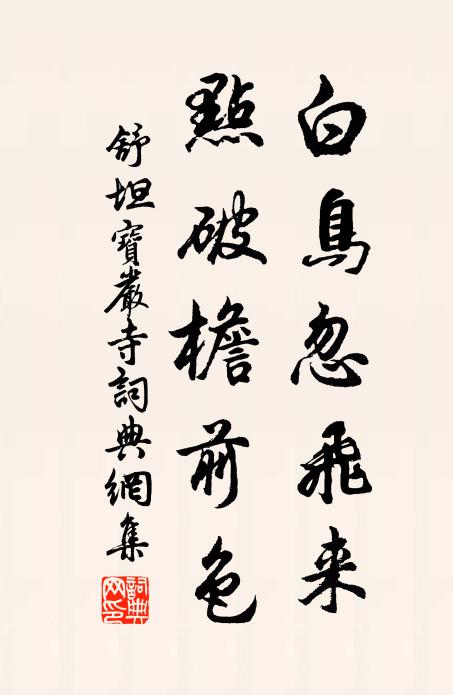 白鳥忽飛来
點破檐前色
舒坦寶嚴寺詞典網集
詞典網印